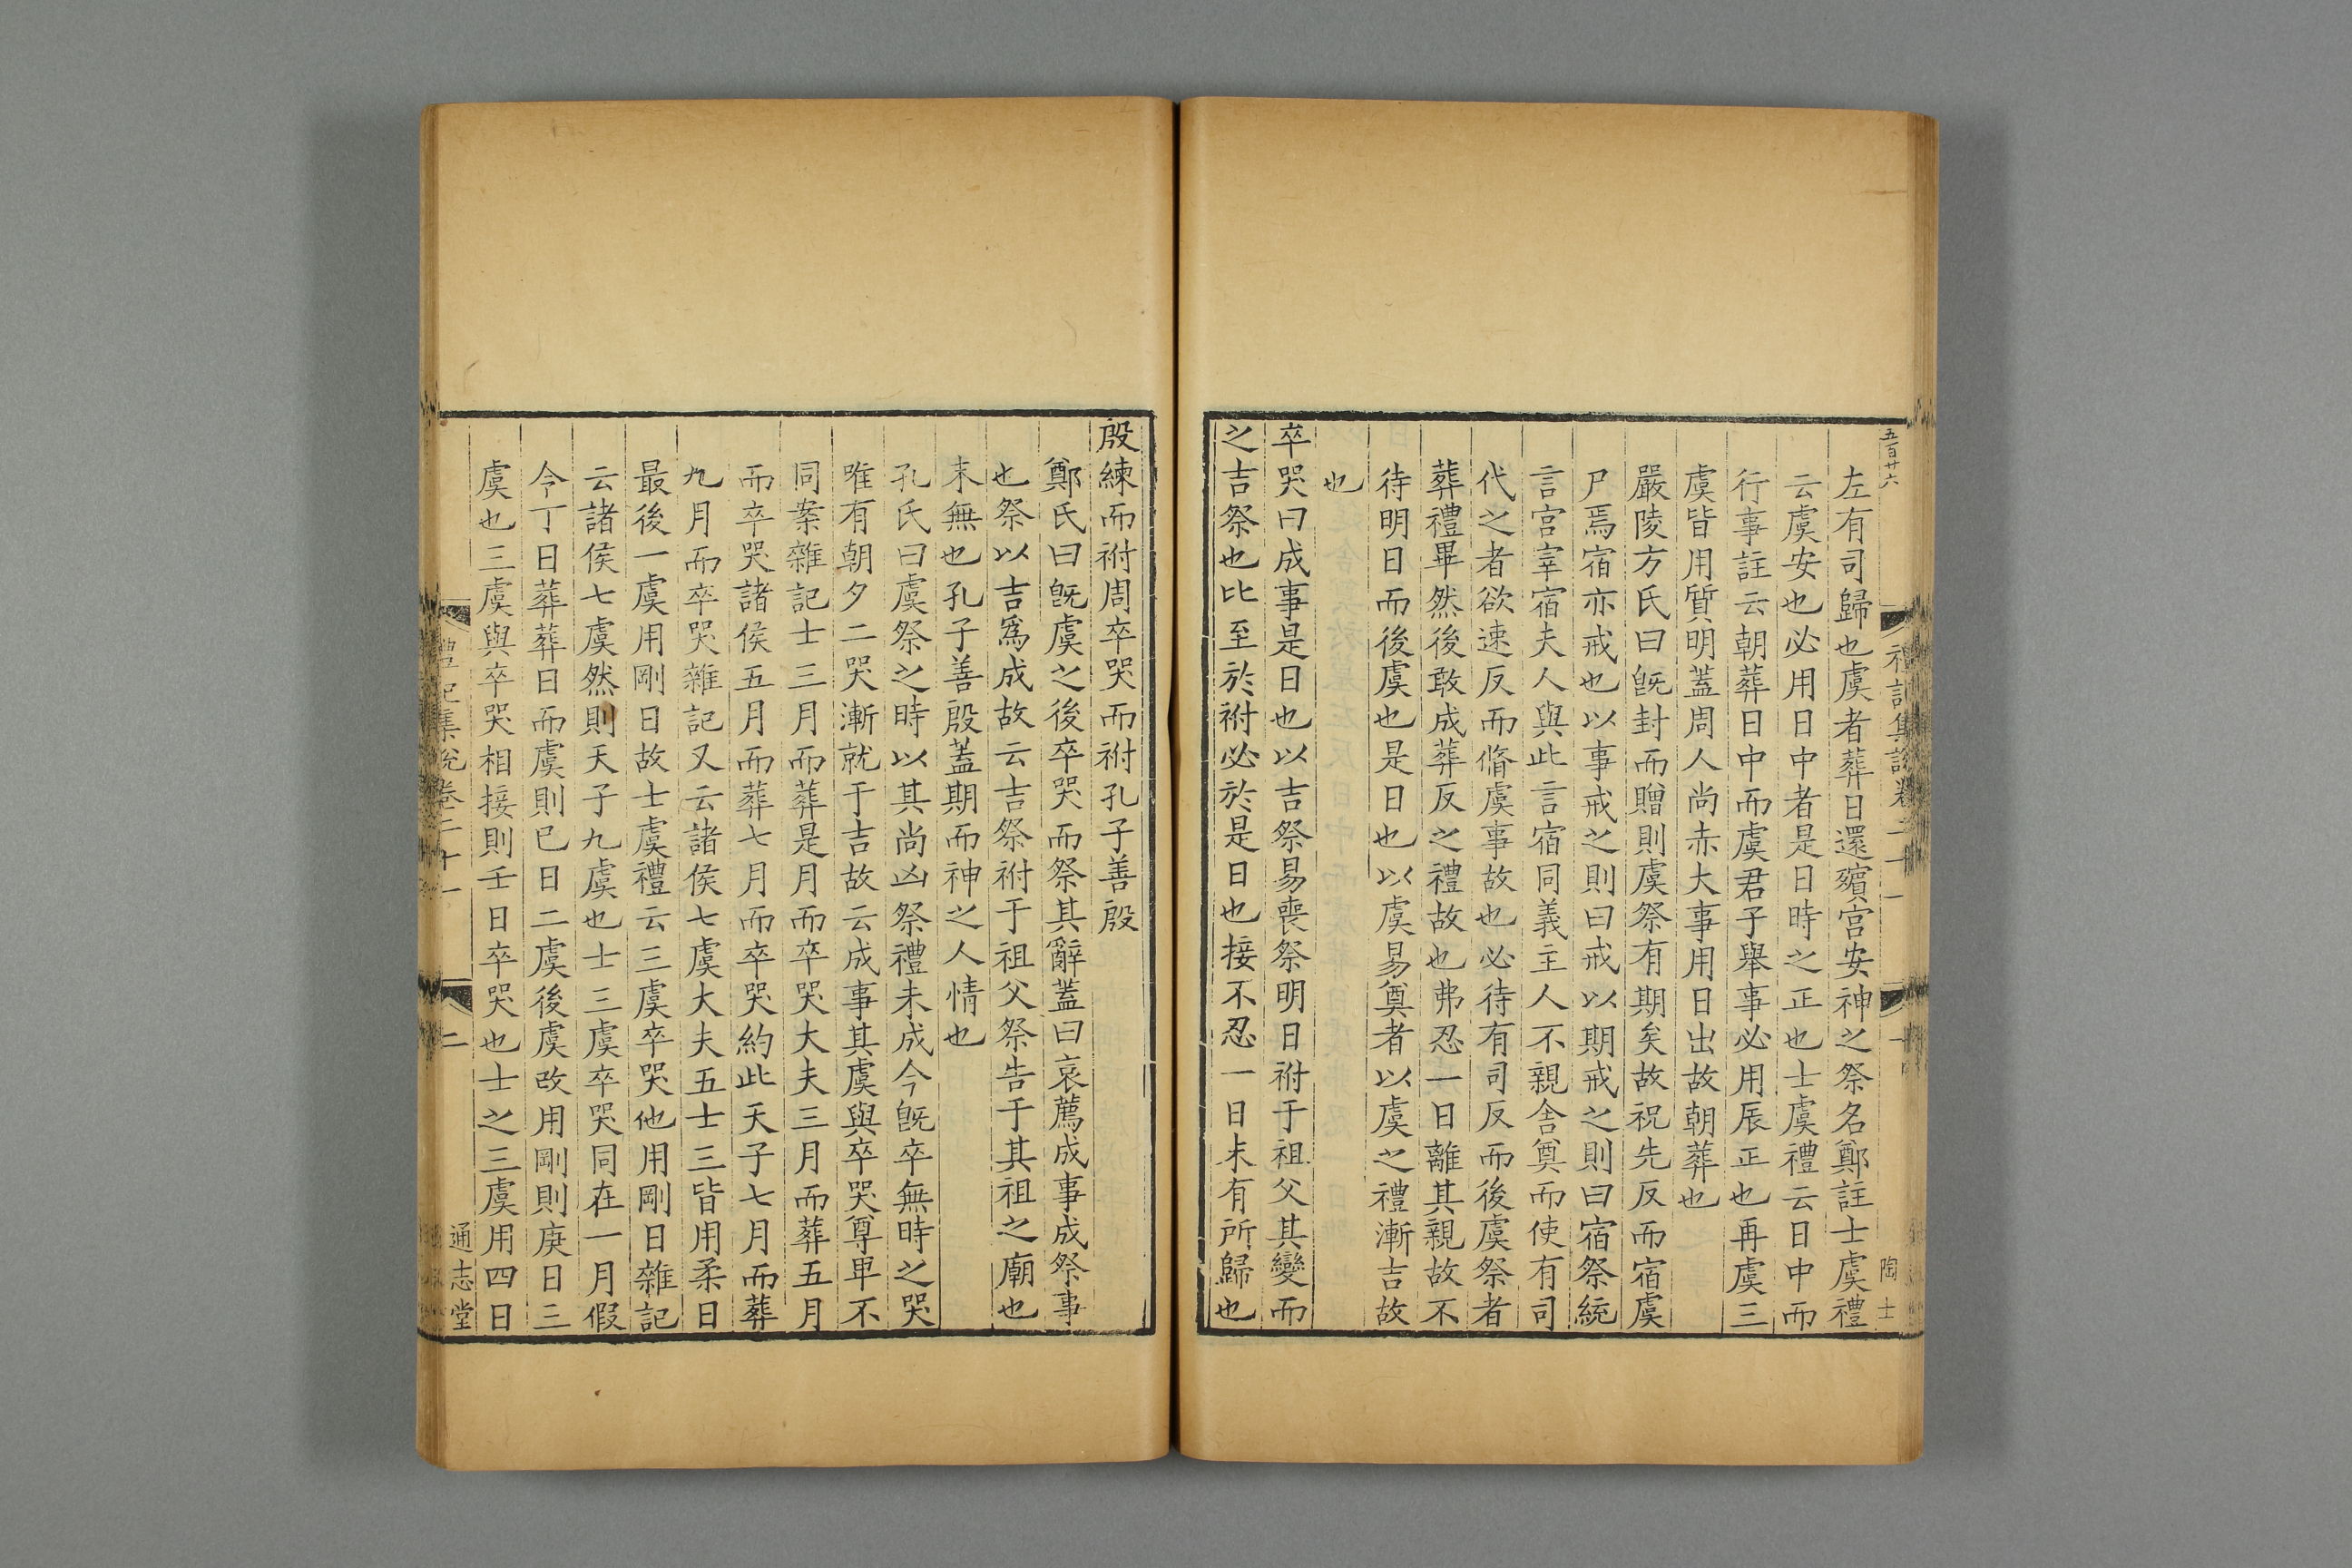 五百廿六
禮記集說卷二十一
一
陶士
左有司歸也虞者葬日還殯宮安神之祭名鄭註士虞禮
云虞安也必用日中者是日時之正也士虞禮云日中而
行事註云朝葬日中而虞君子舉事必用辰正也再虞三
虞皆用質明蓋周人尚赤大事用日出故朝葬也
嚴陵方氏曰旣封而贈則虞祭有期矣故祝先反而宿虞
尸焉宿亦戒也以事戒之則曰戒以期戒之則曰宿祭統
言宮宰宿夫人與此言宿同義主人不親舍奠而使有司
代之者欲速反而脩虞事故也必待有司反而後虞祭者
葬禮畢然後敢成葬反之禮故也弗忍一日離其親故不
待明日而後虞也是日也以虞易奠者以虞之禮漸吉故
也
卒哭曰成事是日也以吉祭易喪祭明日祔于祖父其變而
之吉祭也比至於祔必於是日也接不忍一日末有所歸也
殷練而祔周卒哭而祔孔子善殷
鄭氏曰旣虞之後卒哭而祭其辭蓋曰哀薦成事成祭事
也祭以吉爲成故云吉祭祔于祖父祭告于其祖之廟也
末無也孔子善殷蓋期而神之人情也
孔氏曰虞祭之時以其尚凶祭禮未成今旣卒無時之哭
唯有朝夕二哭漸就于吉故云成事其虞與卒哭尊卑不
同案雜記士三月而葬是月而卒哭大夫三月而葬五月
而卒哭諸侯五月而葬七月而卒哭約此天子七月而葬
九月而卒哭雜記又云諸侯七虞大夫五士三皆用柔日
最後一虞用剛日故士虞禮云三虞卒哭他用剛日雜記
云諸侯七虞然則天子九虞也士三虞卒哭同在一月假
令丁日葬葬日而虞則巳日二虞後虞改用剛則庚日三
虞也三虞與卒哭相接則壬日卒哭也士之三虞用四日
禮記集說卷二十一
二
通志堂